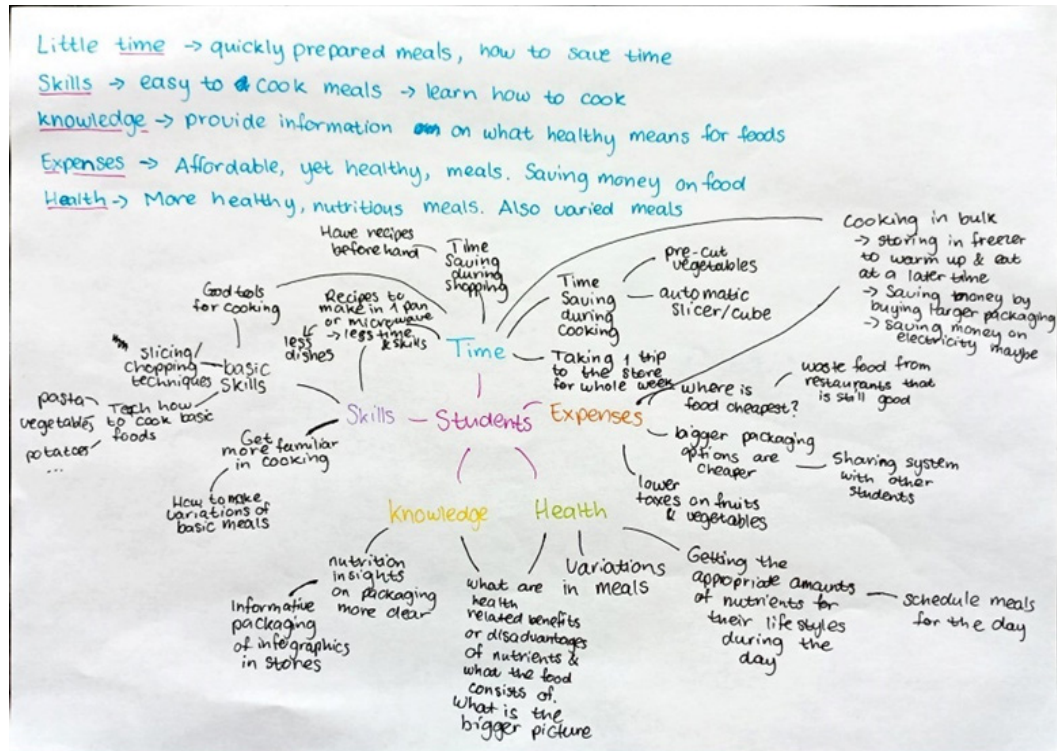 Little time → quickly prepared meals, how to save time
Skills → easy to cook meals → learn how to cook
knowledge → provide information on what healthy means for foods
Expenses → Affordable, yet healthy, meals. Saving money on food
Health → More healthy, nutritious meals. Also varied meals
Have recipes
before hand
Time
Saving
during
shopping
Time
Saving
during
Cooking
pre-cut
vegetables
automatic
slicer/cube
Cooking in bulk
→ storing in freezer
to warm up & eat
at a later time
→ Saving money by
buying larger packaging
→ saving money on
electricity maybe
Good tools
for cooking
Recipes to
make in 1 pan
or microwave
→ less time
& skills
less
dishes
Time
Taking 1 trip
to the store
for whole week
slicing/
chopping
techniques
basic
Skills
Teach how
to cook basic
foods
pasta
vegetables
potatoes
...
Skills
Students
Expenses
where is
food cheapest?
waste food from
restaurants that
is still good
bigger packaging
options are
cheaper
Sharing system
with other
students
lower
taxes on fruits
& vegetables
Get
more familiar
in cooking
How to make
variations of
basic meals
knowledge
Health
nutrition
insights
on packaging
more clear
Informative
packaging
of infographics
in stores
what are
health
related benefits
or disadvantages
of nutrients &
what the food
consists of.
What is the
bigger picture
Variations
in meals
Getting the
appropriate amounts
of nutrients for
their lifestyles
during the
day
schedule meals
for the day